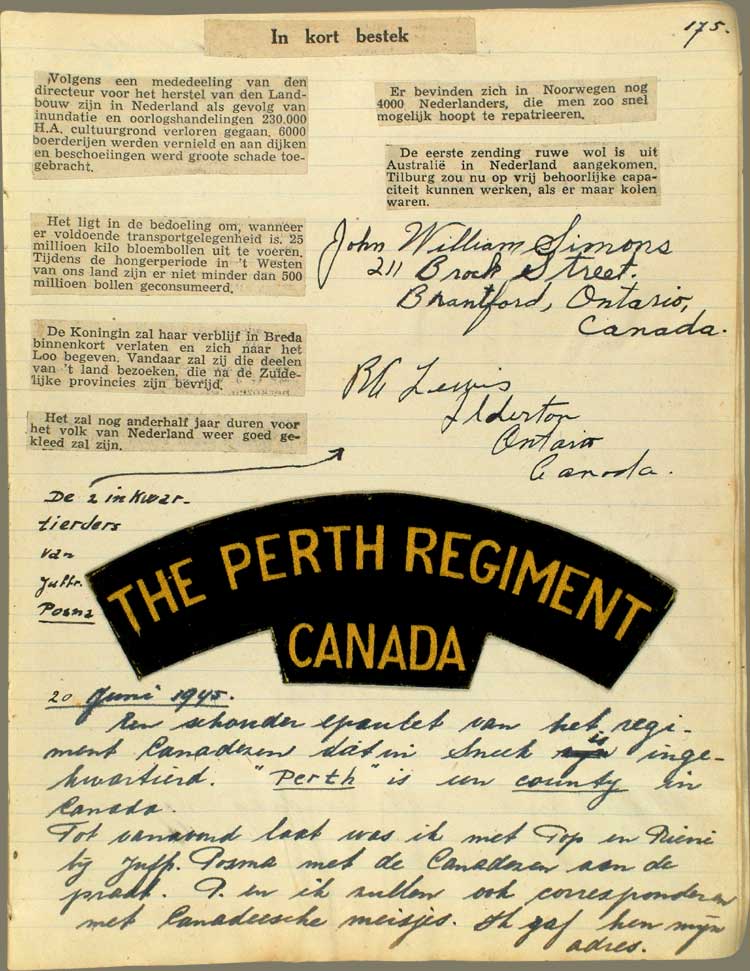 175.
In kort bestek
Volgens een mededeeling van den
directeur voor het herstel van den Land-
bouw zijn in Nederland als gevolg van
inundatie en oorlogshandelingen 230.000
H.A. cultuurgrond verloren gegaan. 6000
boerderijen werden vernield en aan dijken
en beschoeiingen werd groote schade toe-
gebracht.
Het ligt in de bedoeling om, wanneer
er voldoende transportgelegenheid is. 25
millioen kilo bloembollen uit te voeren.
Tijdens de hongerperiode in 't Westen
van ons land zijn er niet minder dan 500
millioen bollen geconsumeerd.
De Koningin zal haar verblijf in Breda
binnenkort verlaten en zich naar het
Loo begeven. Vandaar zal zij die deelen
van 't land bezoeken, die na de Zuide-
lijke provincies zijn bevrijd.
Het zal nog anderhalf jaar duren voor
het volk van Nederland weer goed ge-
kleed zal zijn.
Er bevinden zich in Noorwegen nog
4000 Nederlanders, die men zoo snel
mogelijk hoopt te repatrieeren.
De eerste zending ruwe wol is uit
Australië in Nederland aangekomen.
Tilburg zou nu op vrij behoorlijke capa-
citeit kunnen werken, als er maar kolen
waren.
John William Simons
211 Brock Street.
Brantford, Ontario,
Canada.
Lewis
Ilderton
Ontario
Canada.
De 2 inkwar-
tierders
van
Juffr.
Posma
THE PERTH REGIMENT
CANADA
20 Juni 1945.
Een schouder epaulet van het regi-
ment Canadezen dat in Sneek is inge-
kwartierd. "Perth" is een county in
Canada.
Tot vanavond laat was ik met Top en Rieni
bij Juffr. Posma met de Canadezen aan de
praat. T. en ik zullen ook corresponderen
met Canadeesche meisjes. Ik gaf hen mijn
adres.